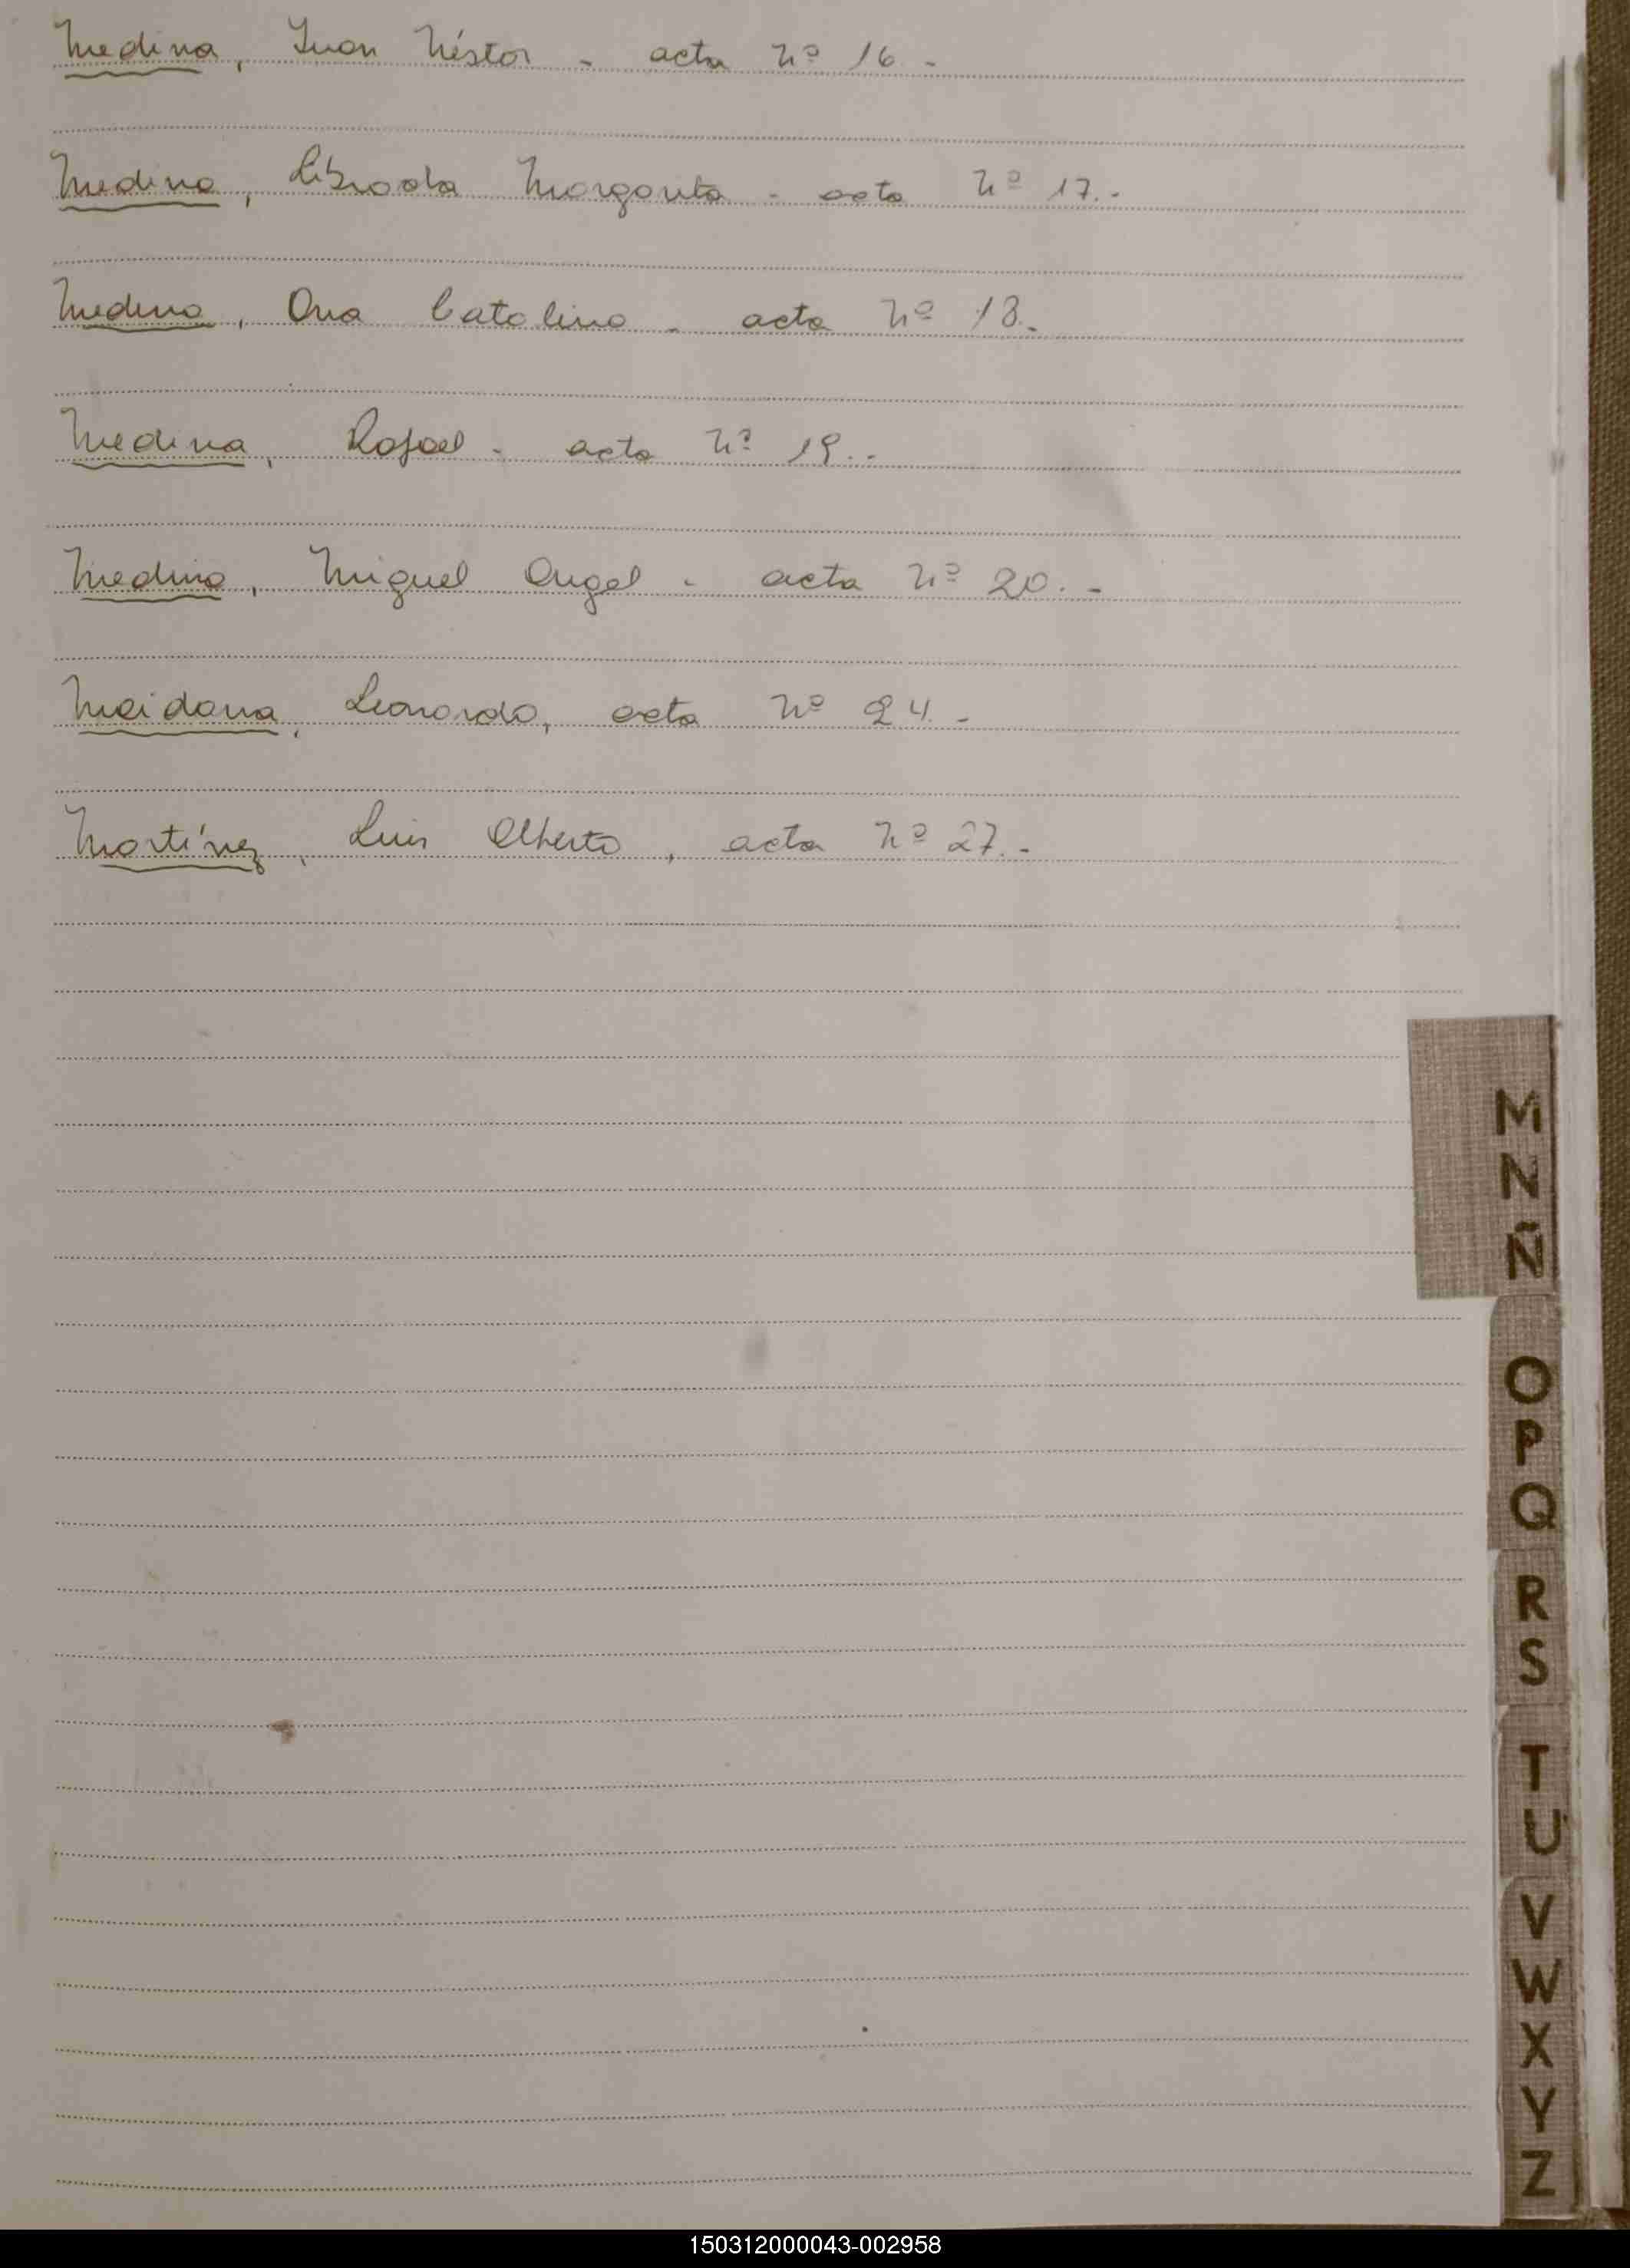 Medina, Juan Néstor - acta nº 16 -
Medina, Librada Margarita - acta nº 17.-
Medina, Ana Catalina - acta nº 18.-
Medina, Rafael - acta nº 19.-
Medina, Miguel Angel - acta nº 20.-
Meidana, Leonardo, acta nº 24.-
Martínez, Luis Alberto, acta nº 27.-
M
N
Ñ
O
P
Q
R
S
T
U
V
W
X
Y
Z
150312000043-002958